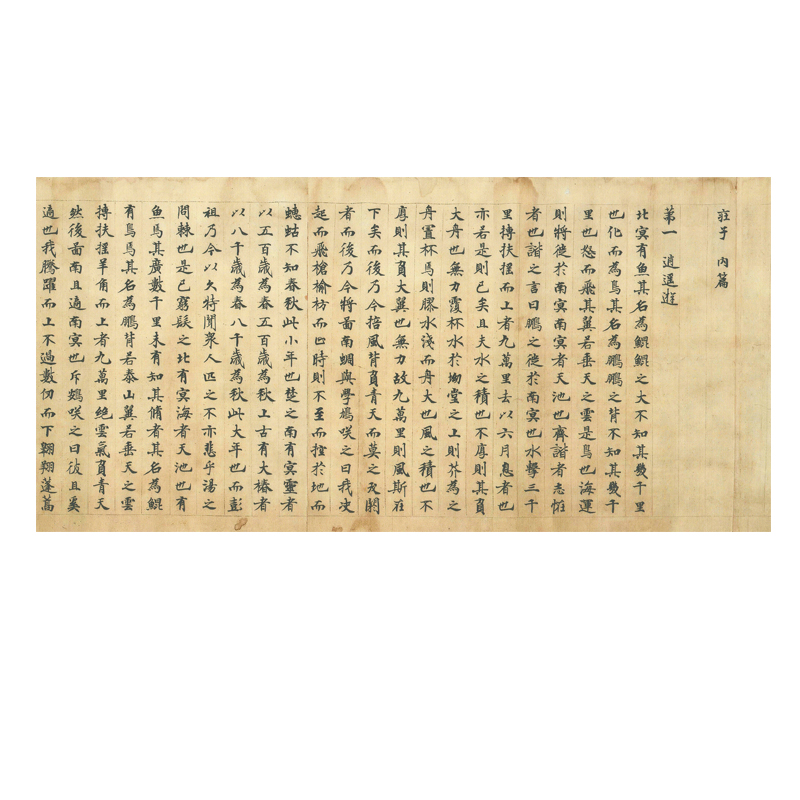 莊子 内篇
第一 逍遥遊
北冥有魚其名為鯤鯤之大不知其幾千里
也化而為鳥其名為鵬鵬之背不知其幾千
里也怒而飛其翼若垂天之雲是鳥也海運
則將徙於南冥南冥者天池也齊諧者志恠
者也諧之言曰鵬之徙於南冥也水擊三千
里摶扶揺而上者九萬里去以六月息者也
亦若是則已矣且夫水之積也不厚則其負
大舟也無力覆杯水於坳堂之上則芥為之
舟置杯焉則膠水淺而舟大也風之積也不
厚則其負大翼也無力故九萬里則風斯在
下矣而後乃今掊風背負青天而莫之夭閼
者而後乃今將啚南蜩與學鳩咲之曰我决
起而飛槍榆枋而止時則不至而控於地而
蟪蛄不知春秋此小年也楚之南有冥靈者
以五百歲為春五百歲為秋上古有大椿者
以八千歲為春八千歲為秋此大年也而彭
祖乃今以久特聞衆人匹之不亦悲乎湯之
問棘也是已窮髮之北有冥海者天池也有
魚焉其廣數千里未有知其脩者其名為鯤
有鳥焉其名為鵬背若泰山翼若垂天之雲
摶扶揺羊角而上者九萬里絶雲氣負青天
然後啚南且適南冥也斥鴳咲之曰彼且奚
適也我騰躍而上不過數仞而下翱翔蓬蒿